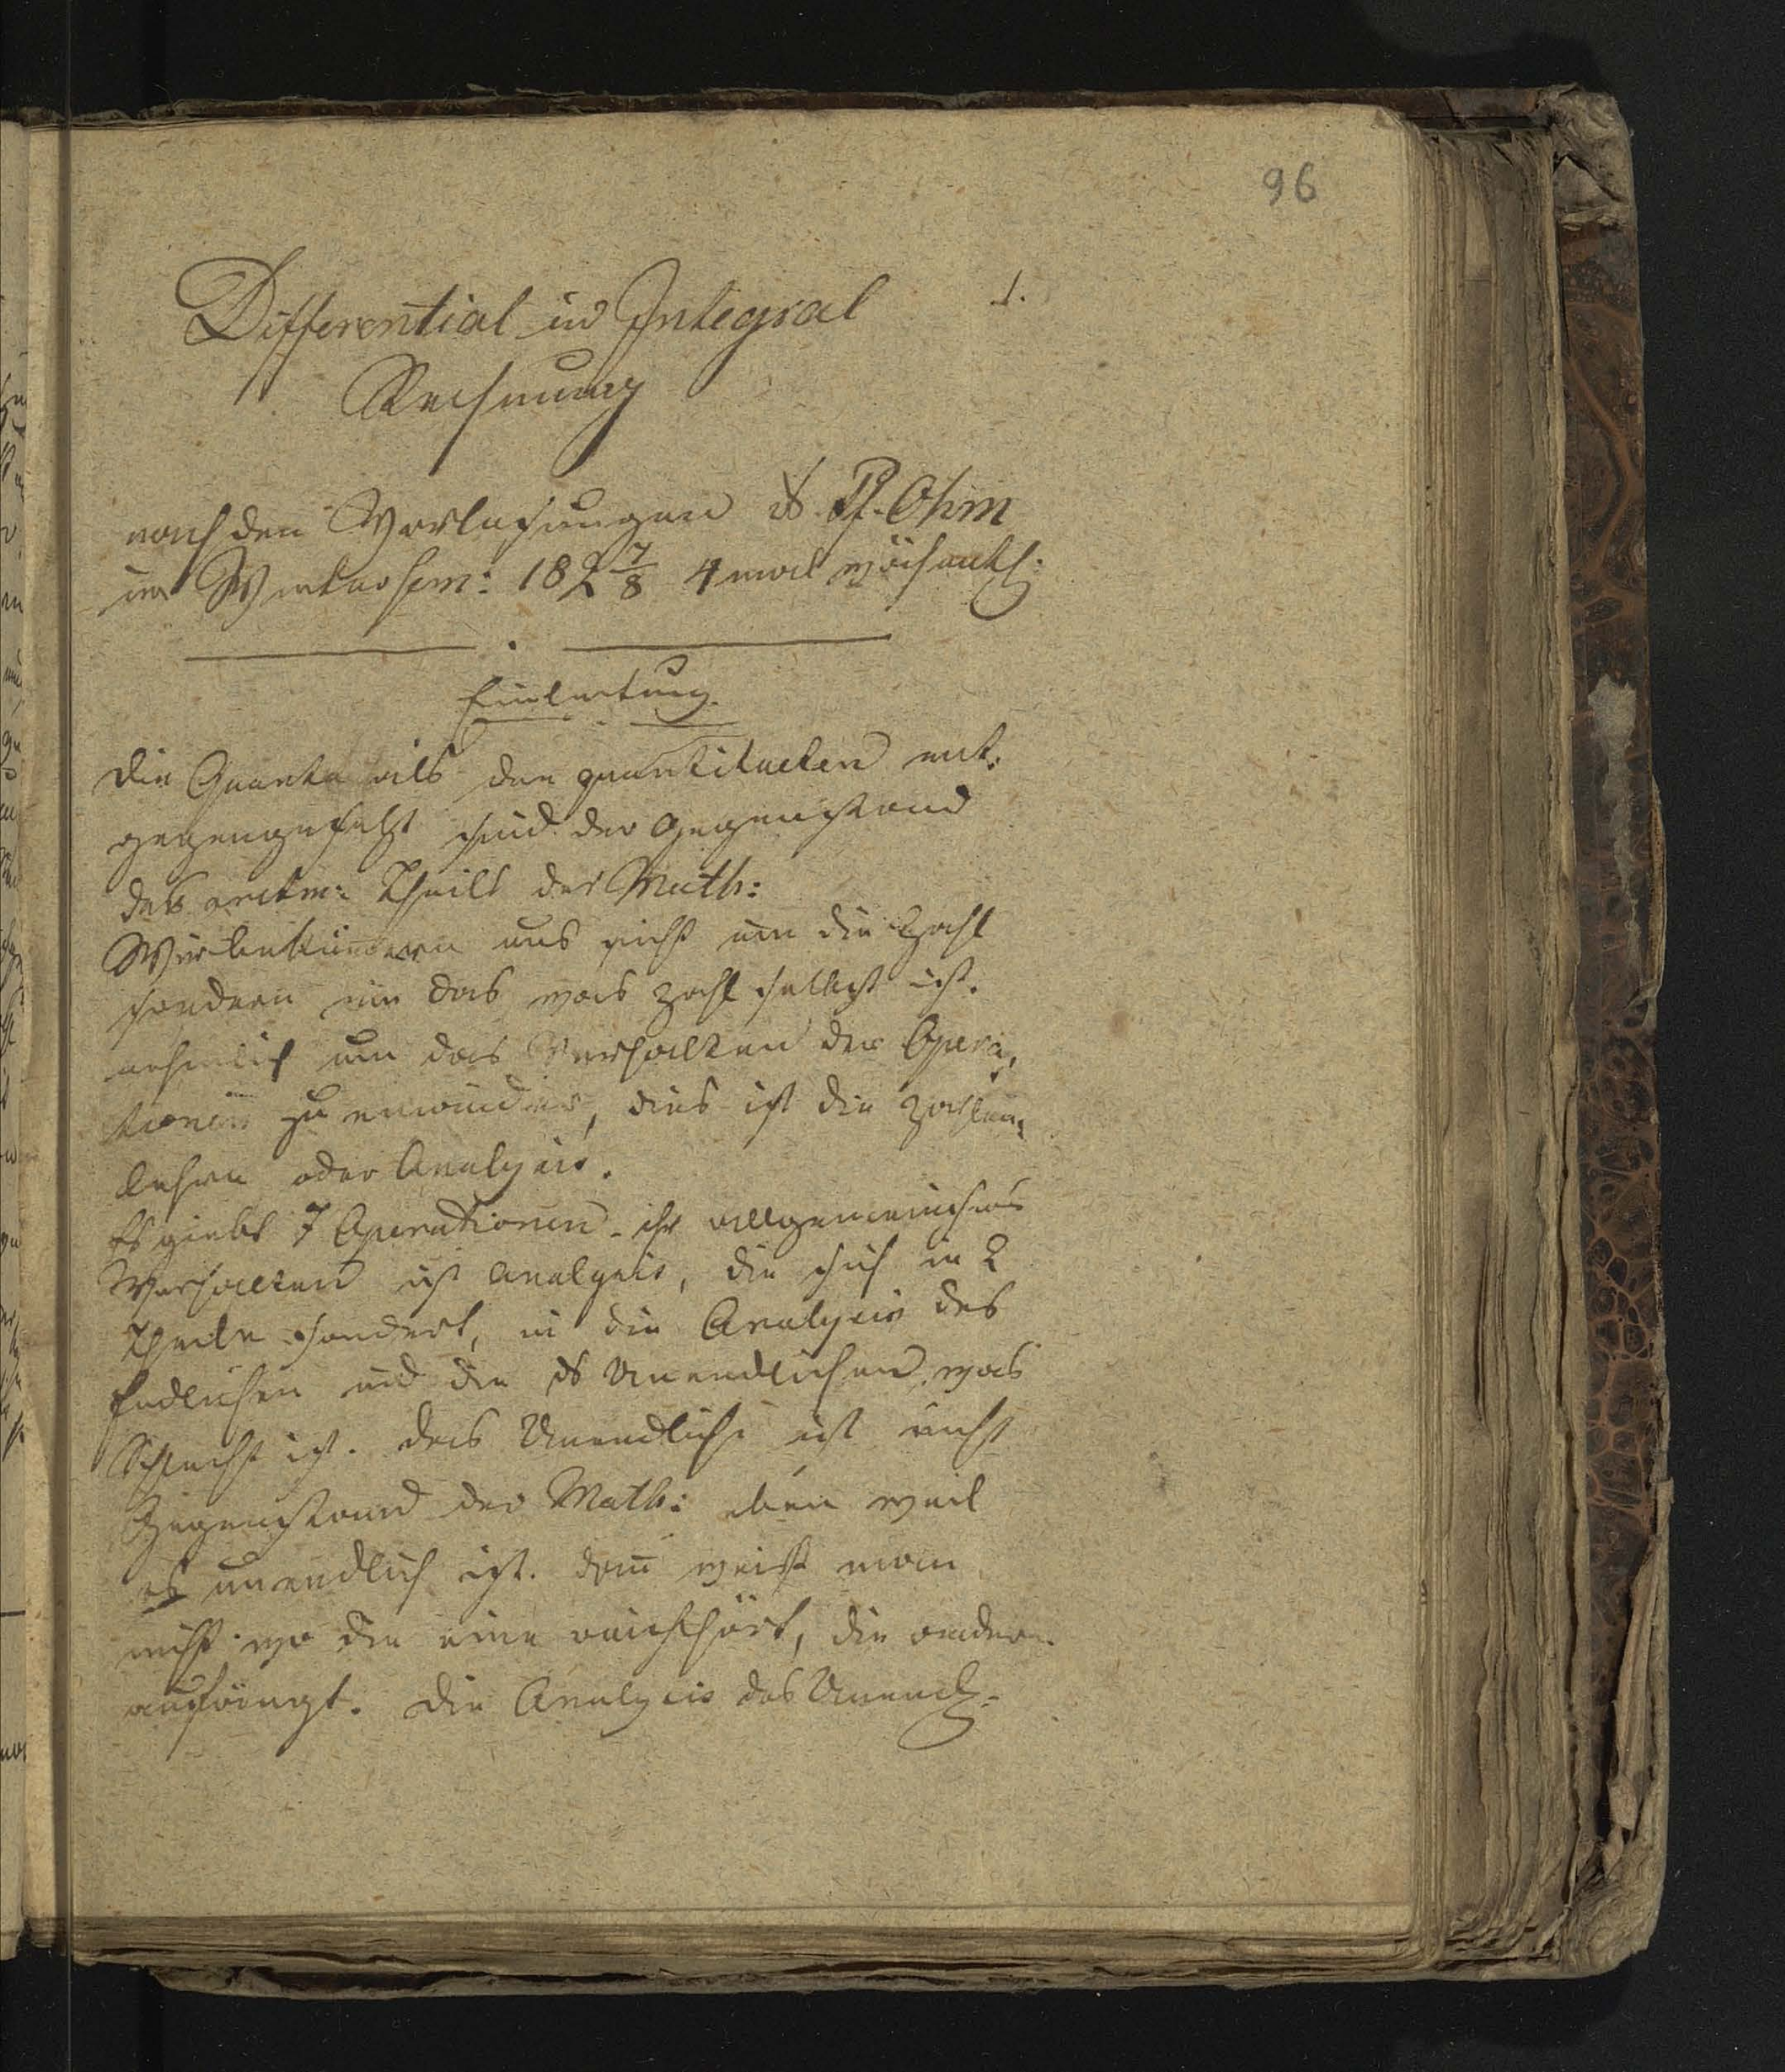 96
1.
Differential und Integral
Rechnung
nach den Vorlesungen ds. Pf. Ohm
im Wintersem: 182 7/8 4 mal wöchentl:
Einleitung.
Die Quanta als den quantitaeten ent:
gegengesetzt sind der Gegenstand
des arithm: Theils der Math:
Wir bekümern uns nicht um die Zahl
sondern um das was Zahl selbst ist.
nehmlich um das Verhalten der Opera,
tionen zu einander, dies ist die Zahlen,
lehre oder Analysis.
Es giebt 7 Operationen - ihr allgemeinstes
Verhalten ist Analysis, die sich in 2
Theile sondert, in die Analysis des
Endlichen und die ds Unendlichen, was
Schlecht ist. Das Unendliche ist nicht
Gegenstand der Math: eben weil
es unendlich ist. dann weiß man
nicht wo die eine aufhört, die andere
anfängt. Die Analysis des Unendl: